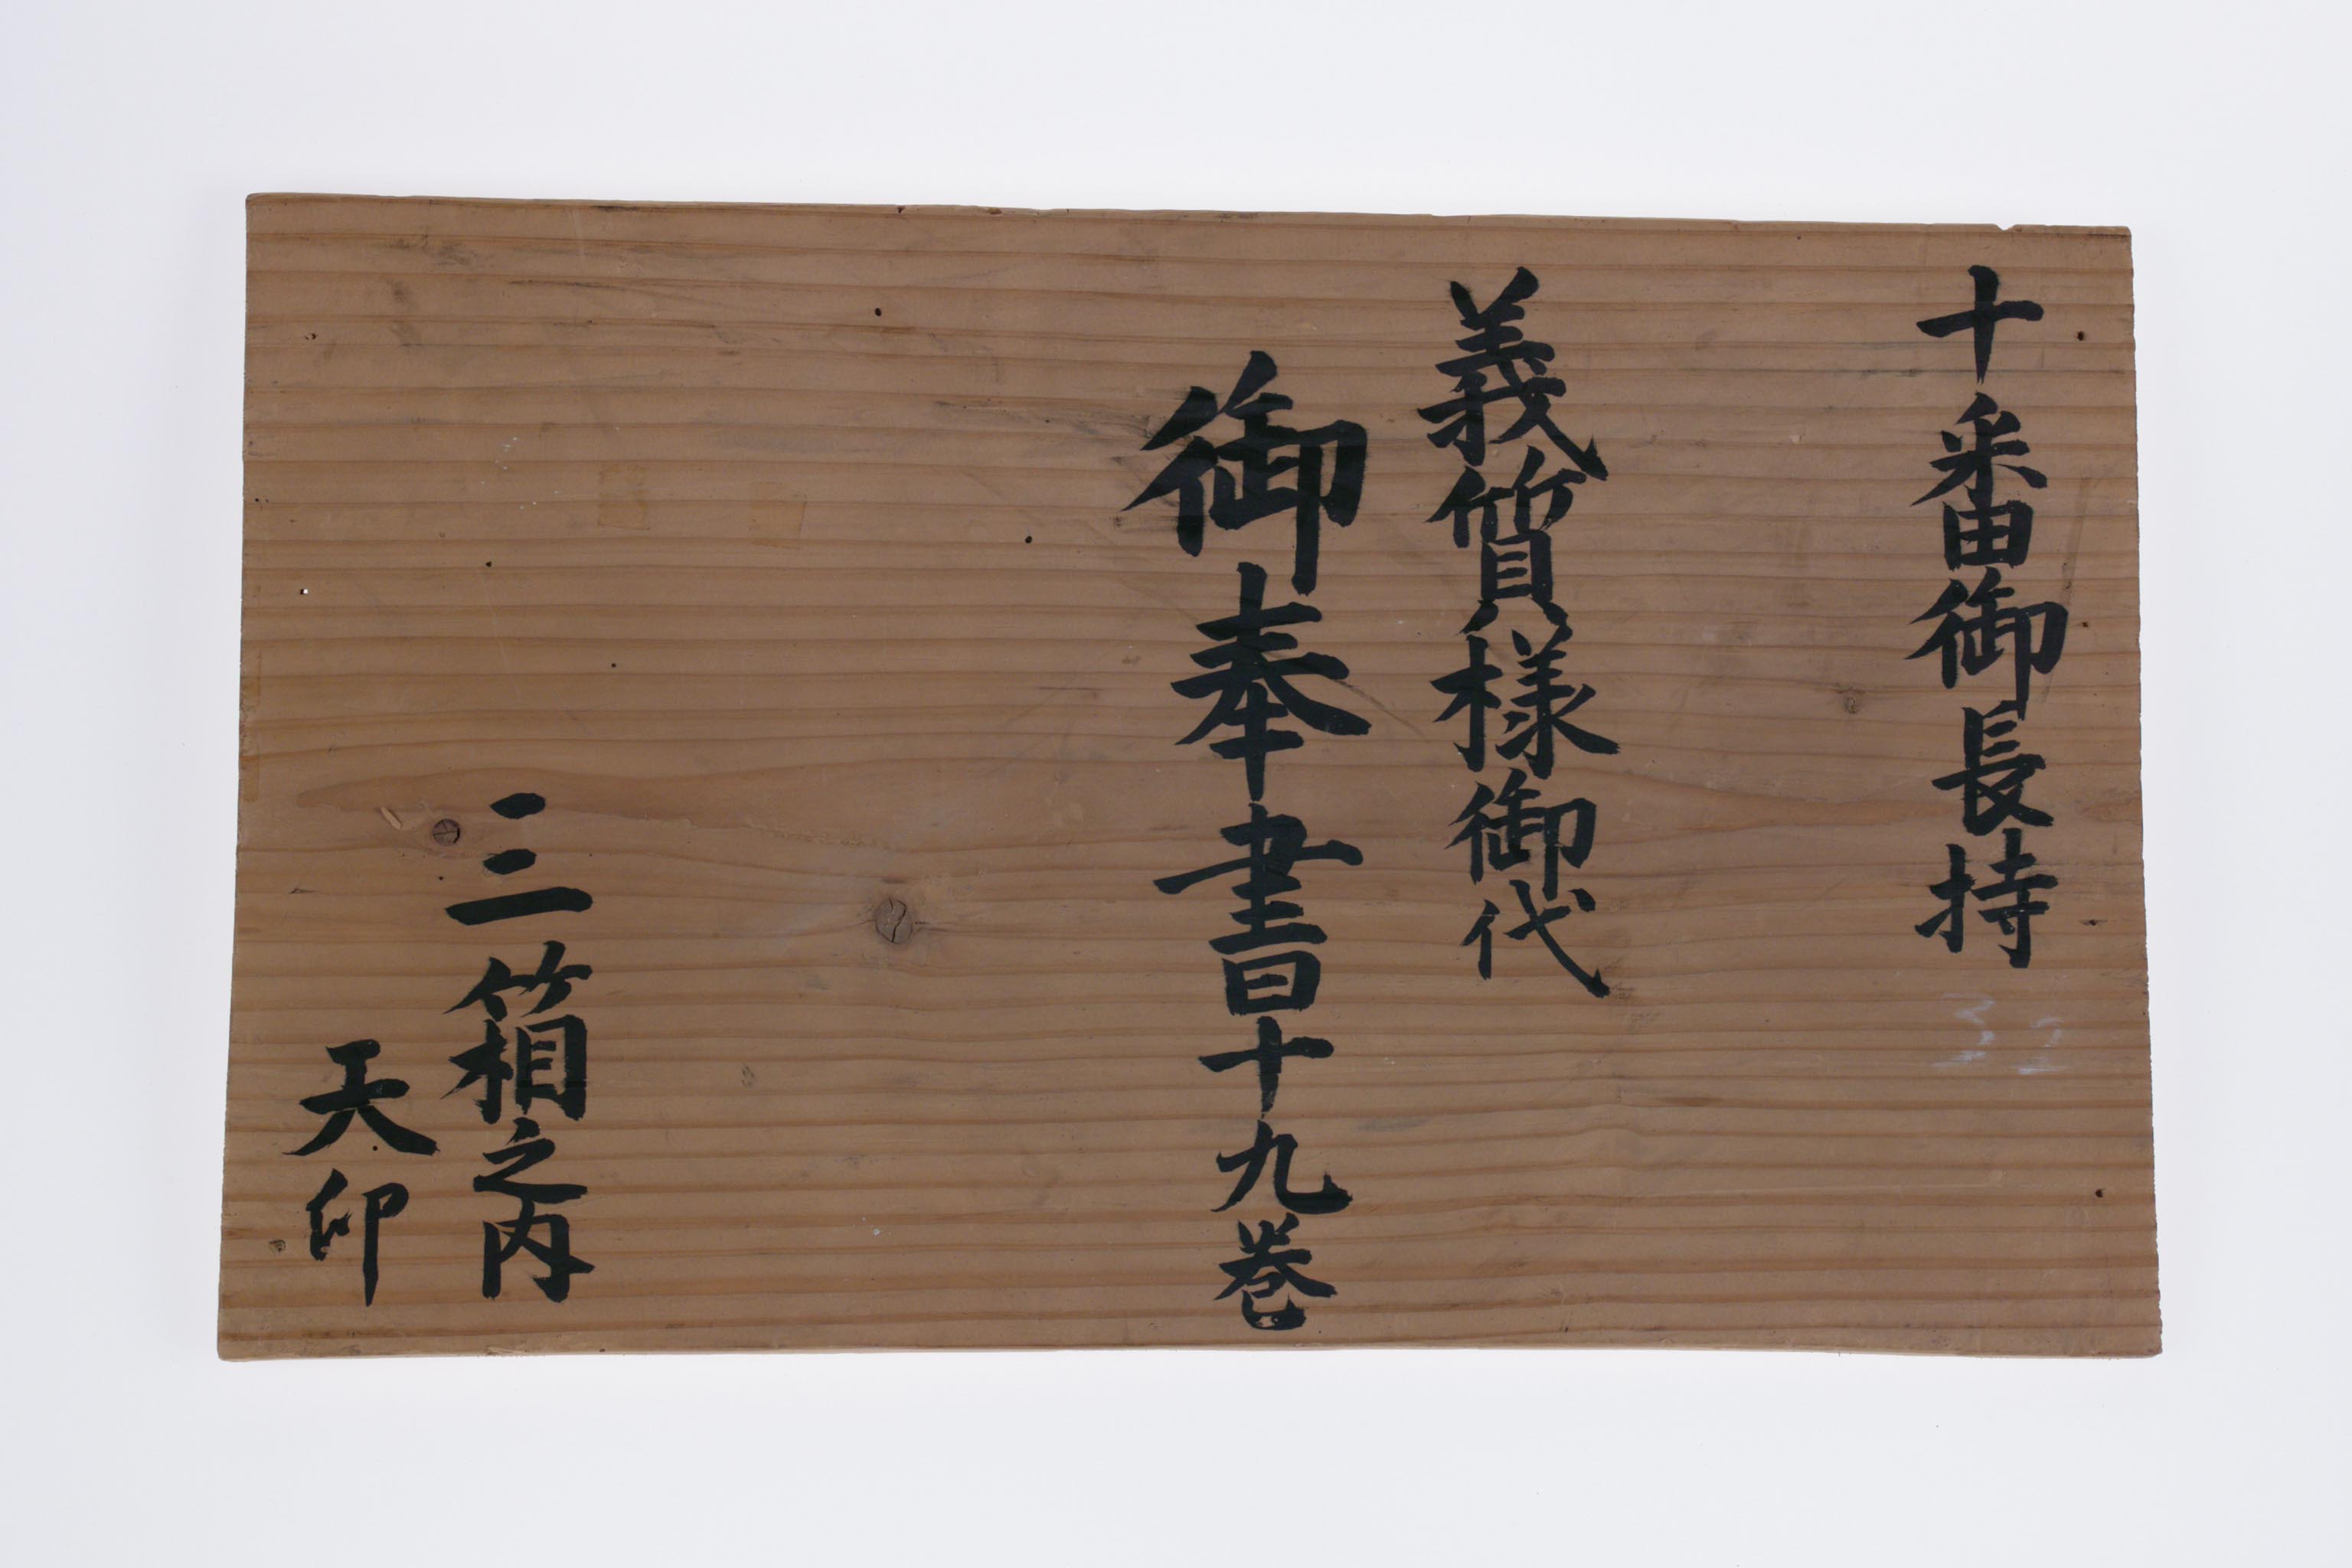 十番御長持
義質様御代
御奉書十九巻
三箱之内
天印
32